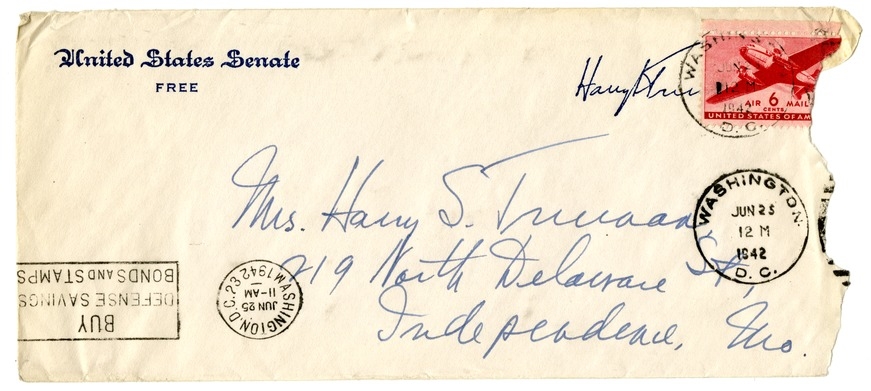 United States Senate
FREE
Harry S. Tru
AIR 6 MAIL
CENTS
UNITED STATES OF AM
WASHINGTON
1942
D. C.
Mrs. Harry S. Truman
219 North Delaware St,
Independence, Mo.
WASHINGTON
JUN 25
12 M
1942
D. C.
WASHINGTON, D.C. 23
JUN 25
11-AM
1942
BUY
DEFENSE SAVINGS
BONDS AND STAMPS